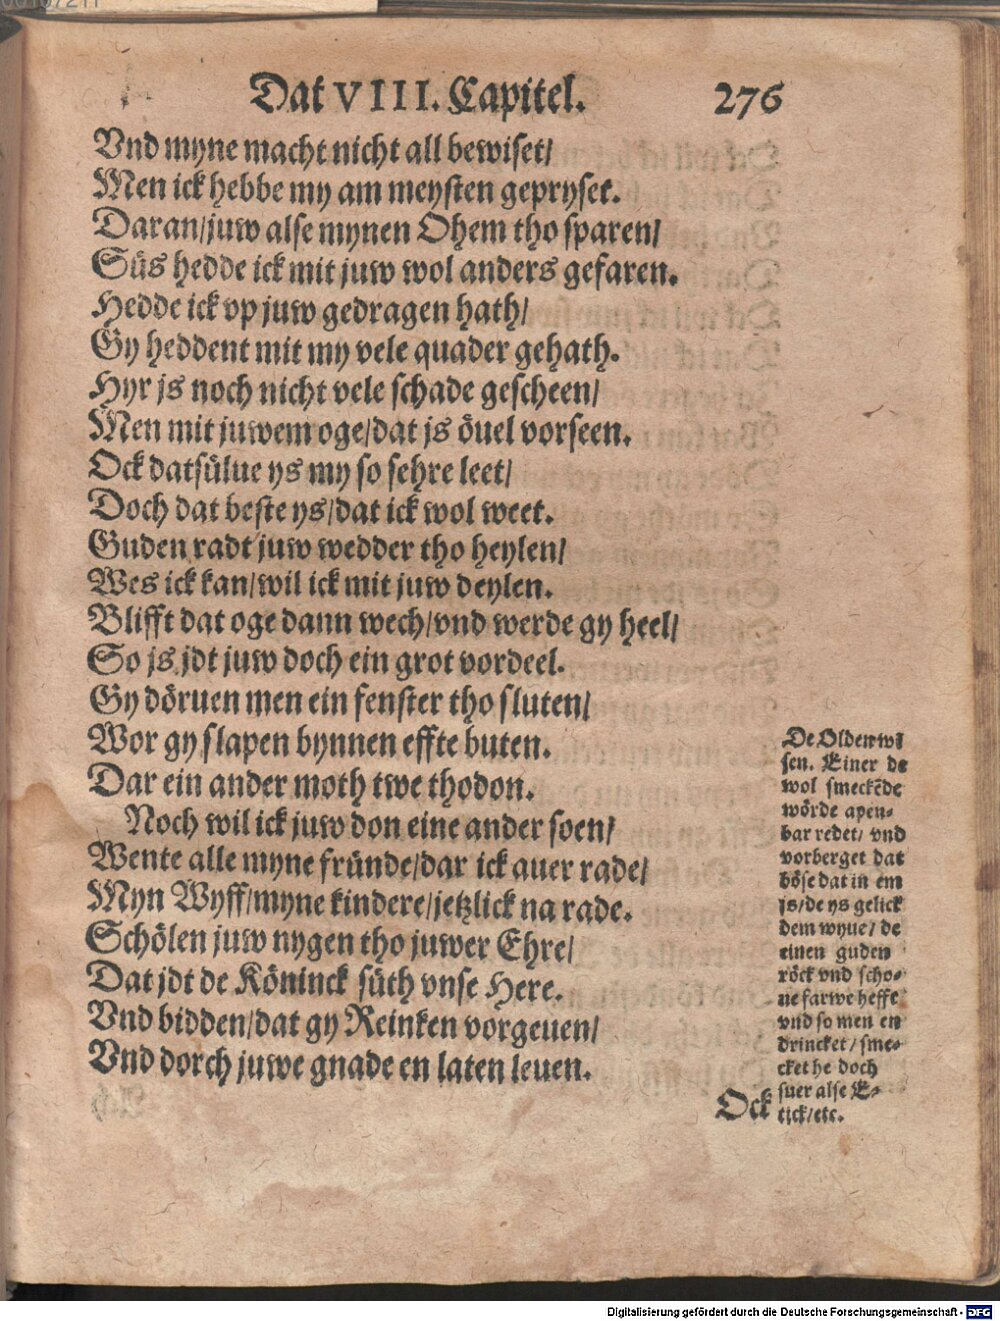 Dat VIII. Capitel. 276
Vnd myne macht nicht all bewiset/
Men ick hebbe my am meysten gepryset.
Daran/juw alse mynen Ohem tho sparen/
Süs hedde ick mit juw wol anders gefaren.
Hedde ick vp juw gedragen hath/
Gy heddent mit my vele quader gehath.
Hyr js noch nicht vele schade gescheen/
Men mit juwem oge/dat js öuel vorseen.
Ock datsülue ys my so sehre leet/
Doch dat beste ys/dat ick wol weet.
Guden radt juw wedder tho heylen/
Wes ick kan/wil ick mit juw deylen.
Blifft dat oge dann wech/vnd werde gy heel/
So js jdt juw doch ein grot vordeel.
Gy döruen men ein fenster tho sluten/
Wor gy slapen bynnen effte buten.
Dar ein ander moth twe thodon.
Noch wil ick juw don eine ander soen/
Wente alle myne fründe/dar ick auer rade/
Myn Wyff/myne kindere/jetzlick na rade.
Schölen juw nygen tho juwer Ehre/
Dat jdt de Köninck süth vnse Here.
Vnd bidden/dat gy Reinken vorgeuen/
Vnd dorch juwe gnade en laten leuen.
De Olden wi
sen. Einer de
wol smeckēde
wörde apen-
bar redet/ vnd
vorberget dat
böse dat in em
js/de ys gelick
dem wyue/ de
einen guden
röck vnd scho-
ne farwe heffe
vnd so men en
drincket/ sme-
cket he doch
suer alse E-
tick/etc.
Ock
Digitalisierung gefördert durch die Deutsche Forschungsgemeinschaft - DFG